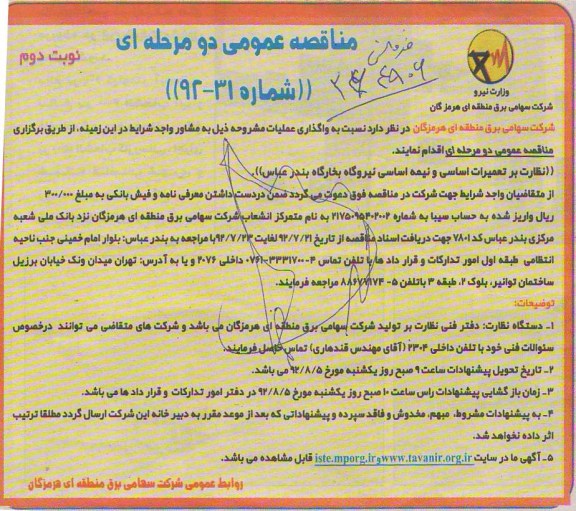 مناقصه عمومی دو مرحله ای
نوبت دوم
((شماره ۳۱-۹۲))
وزارت نیرو
شرکت سهامی برق منطقه ای هرمزگان
شرکت سهامی برق منطقه ای هرمزگان در نظر دارد نسبت به واگذاری عملیات مشروحه ذیل به مشاور واجد شرایط در این زمینه، از طریق برگزاری
مناقصه عمومی دو مرحله ای اقدام نمایند.
((نظارت بر تعمیرات اساسی و نیمه اساسی نیروگاه بخارگاه بندر عباس)).
از متقاضیان واجد شرایط جهت شرکت در مناقصه فوق دعوت می گردد ضمن دردست داشتن معرفی نامه و فیش بانکی به مبلغ ۳۰۰/۰۰۰
ریال واریز شده به حساب سیبا به شماره ۲۱۷۵۰۹۵۴۰۲۰۰۲ به نام متمرکز انشعاب شرکت سهامی برق منطقه ای هرمزگان نزد بانک ملی شعبه
مرکزی بندر عباس کد ۷۸۰۱ جهت دریافت اسناد مناقصه از تاریخ ۹۲/۷/۲۱ لغایت ۹۲/۷/۲۳ با مراجعه به بندر عباس: بلوار امام خمینی جنب ناحیه
انتظامی طبقه اول امور تدارکات و قرار داد ها با تلفن تماس ۴-۳۳۳۱۷۰۰-۰۷۶۱ داخلی ۲۰۷۶ و یا به آدرس: تهران میدان ونک خیابان برزیل
ساختمان توانیر، بلوک ۲، طبقه ۳ باتلفن ۵- ۸۸۶۷۹۱۷۴ مراجعه فرمایند.
توضیحات:
۱- دستگاه نظارت: دفتر فنی نظارت بر تولید شرکت سهامی برق منطقه ای هرمزگان می باشد و شرکت های متقاضی می توانند درخصوص
سئوالات فنی خود با تلفن داخلی ۲۳۰۴ (آقای مهندس قندهاری) تماس حاصل فرمایند.
۲- تاریخ تحویل پیشنهادات ساعت ۹ صبح روز یکشنبه مورخ ۹۲/۸/۵ می باشد.
۳- زمان باز گشایی پیشنهادات راس ساعت ۱۰ صبح روز یکشنبه مورخ ۹۲/۸/۵ در دفتر امور تدارکات و قرار داد ها می باشد.
۴- به پیشنهادات مشروط، مبهم، مخدوش و فاقد سپرده و پیشنهاداتی که بعد از موعد مقرر به دبیر خانه این شرکت ارسال گردد مطلقا ترتیب
اثر داده نخواهد شد.
۵- آگهی ما در سایت www.tavanir.org.ir و iste.mporg.ir قابل مشاهده می باشد.
روابط عمومی شرکت سهامی برق منطقه ای هرمزگان